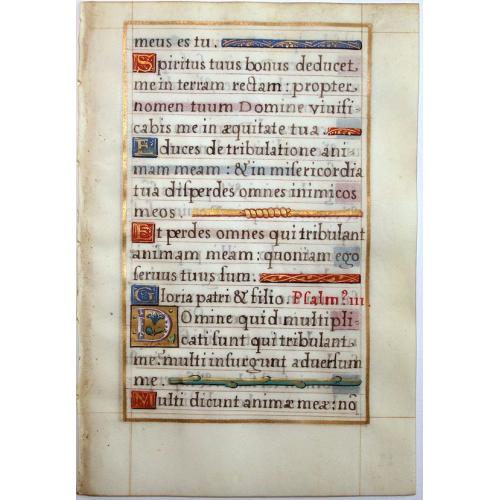 meus es tu.
Spiritus tuus bonus deducet
me in terram rectam: propter
nomen tuum Domine viuifi
cabis me in æquitate tua.
Educes de tribulatione ani
mam meam: & in miſericordia
tua diſperdes omnes inimicos
meos.
Et perdes omnes qui tribulant
animam meam: quoniam ego
ſeruus tuus ſum.
Gloria patri & filio. Pſalm? iii
Domine quid multipli
cati ſunt qui tribulant
me: multi inſurgunt aduerſum
me.
Multi dicunt animæ meæ: nõ